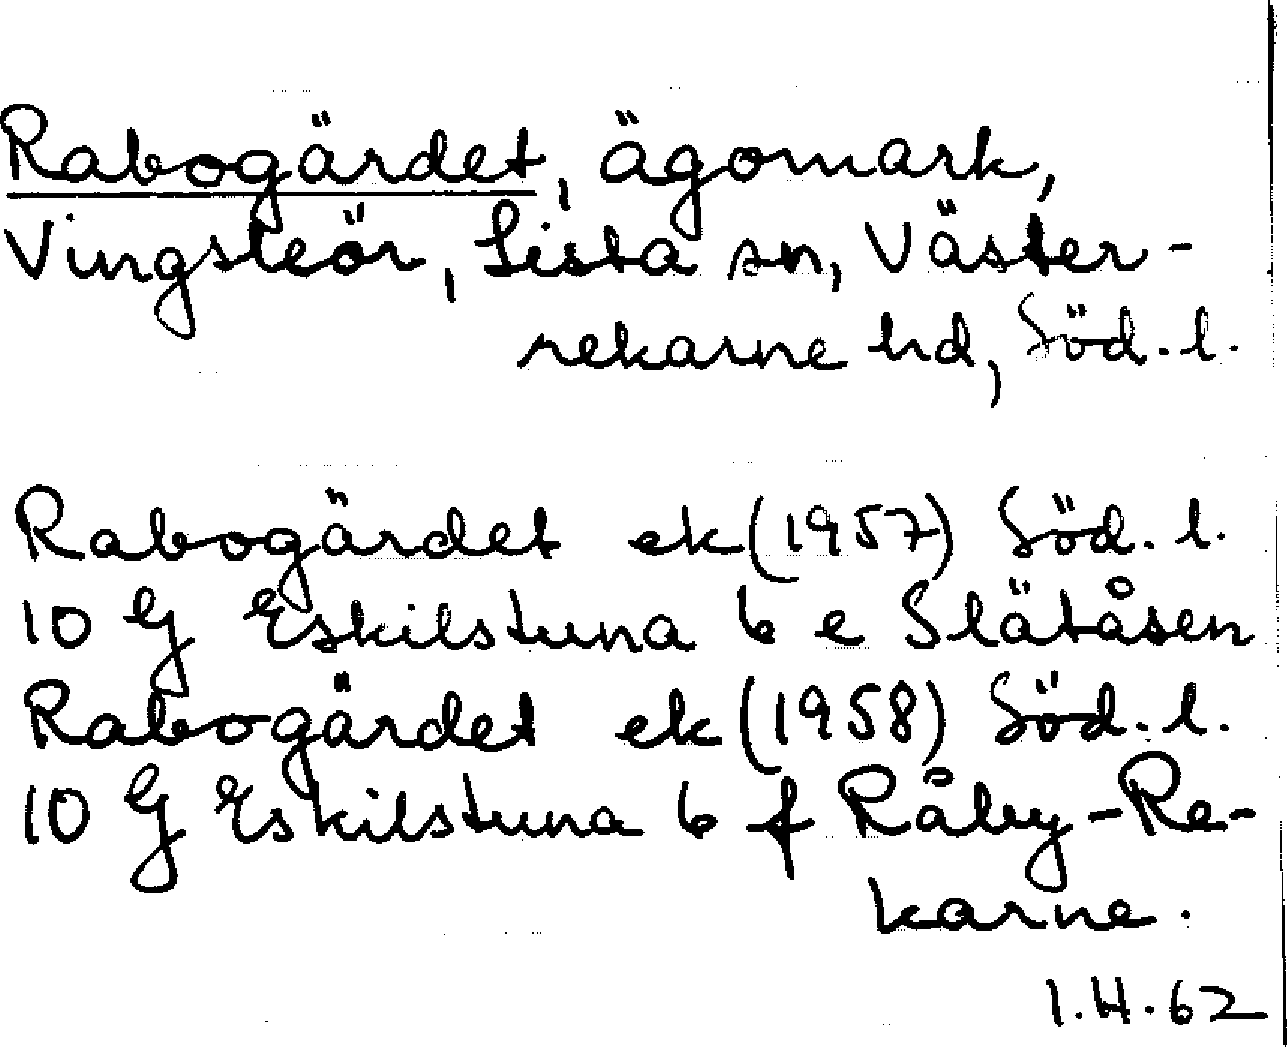 Rabogärdet, ägomark,
Vingsleör, Lista sn, Väster-
rekarne hd, Söd. l.
Rabogärdet ek (1957) Söd. l.
10 G Eskilstuna 6 e Slätåsen
Rabogärdet ek (1958) Söd. l.
10 G Eskilstuna 6 f Råby-Re-
karne.
1.H.62